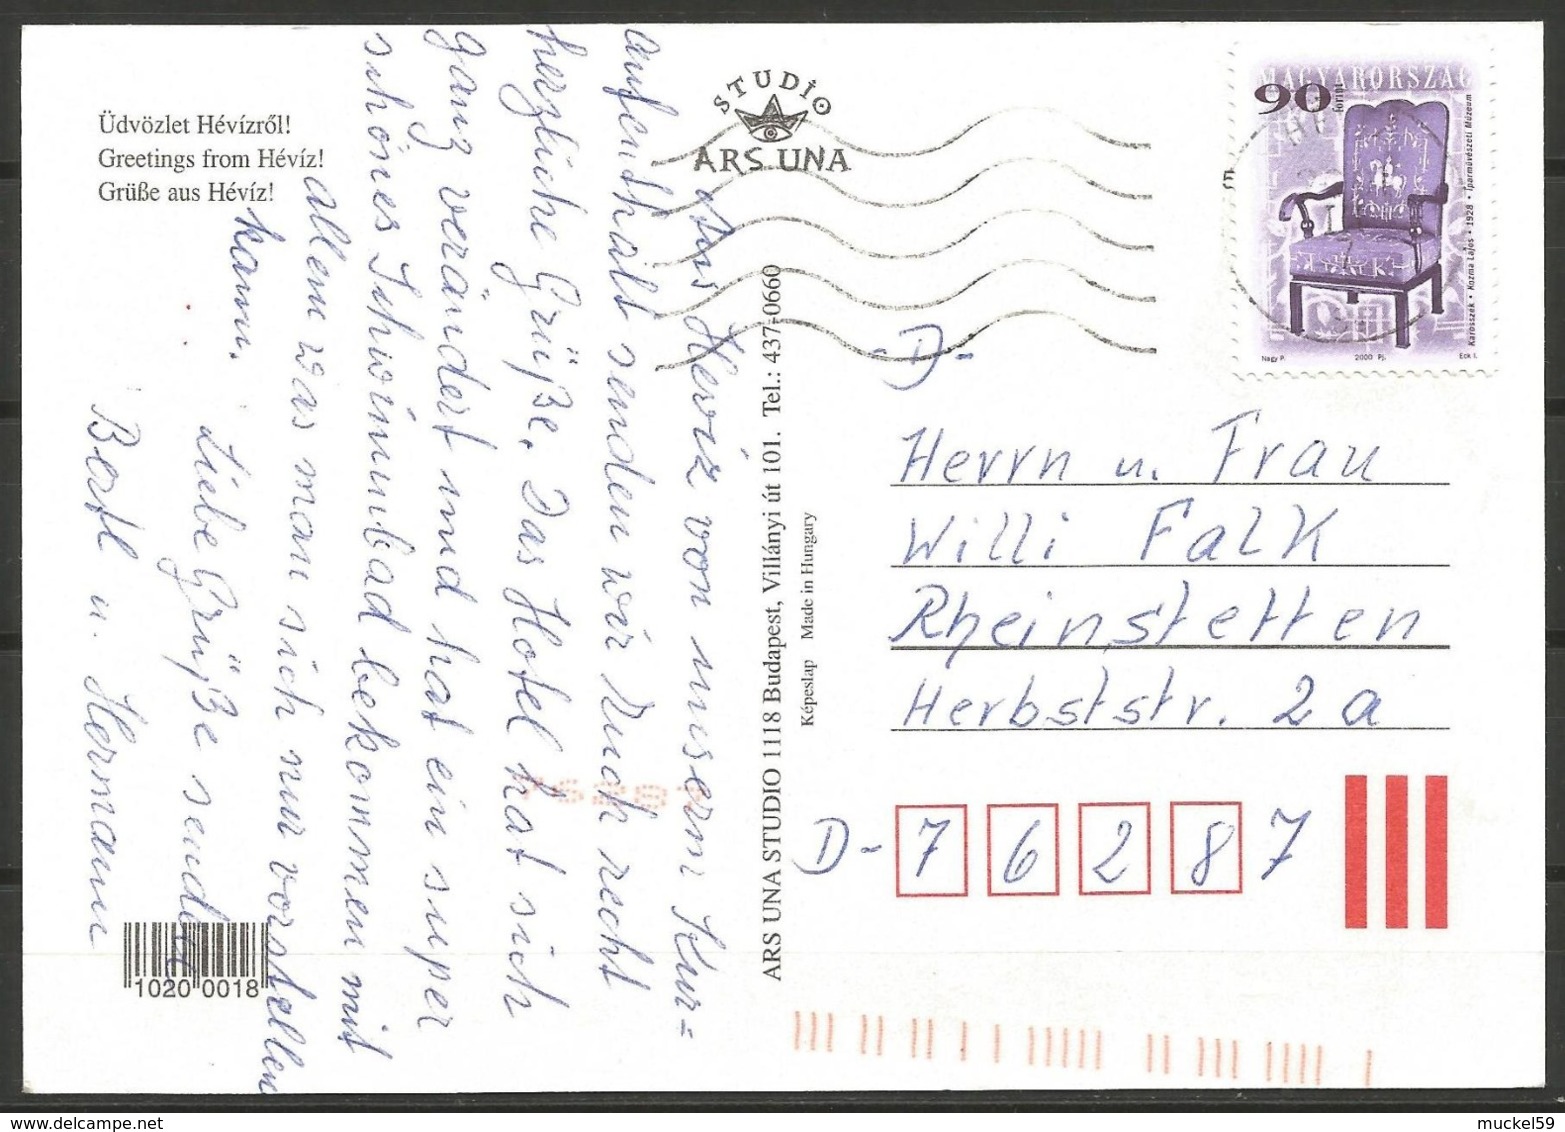 Üdvözlet Hévízről!
Greetings from Hévíz!
Grüße aus Hévíz!
STUDIO
ARS UNA
MAGYARORSZÁG
90
forint
Karosszék • Kozma Lajos • 1928 • Iparművészeti Múzeum
Nagy P. 2000 Pj. Eck I.
Aus Heviz von unsern Kur=
aufenthalt senden wir Euch recht
herzliche Grüße. Das Hotel hat sich
ganz verändert und hat ein super
schönes Schwimmbad bekommen mit
allem was man sich nur vorstellen
kann.
Liebe Grüße senden
Bertl u. Hermann
ARS UNA STUDIO 1118 Budapest, Villányi út 101. Tel.: 437-0660
Képeslap Made in Hungary
-D-
Herrn u. Frau
Willi Falk
Rheinstetten
Herbststr. 2a
D-76287
1020 0018
muckel59